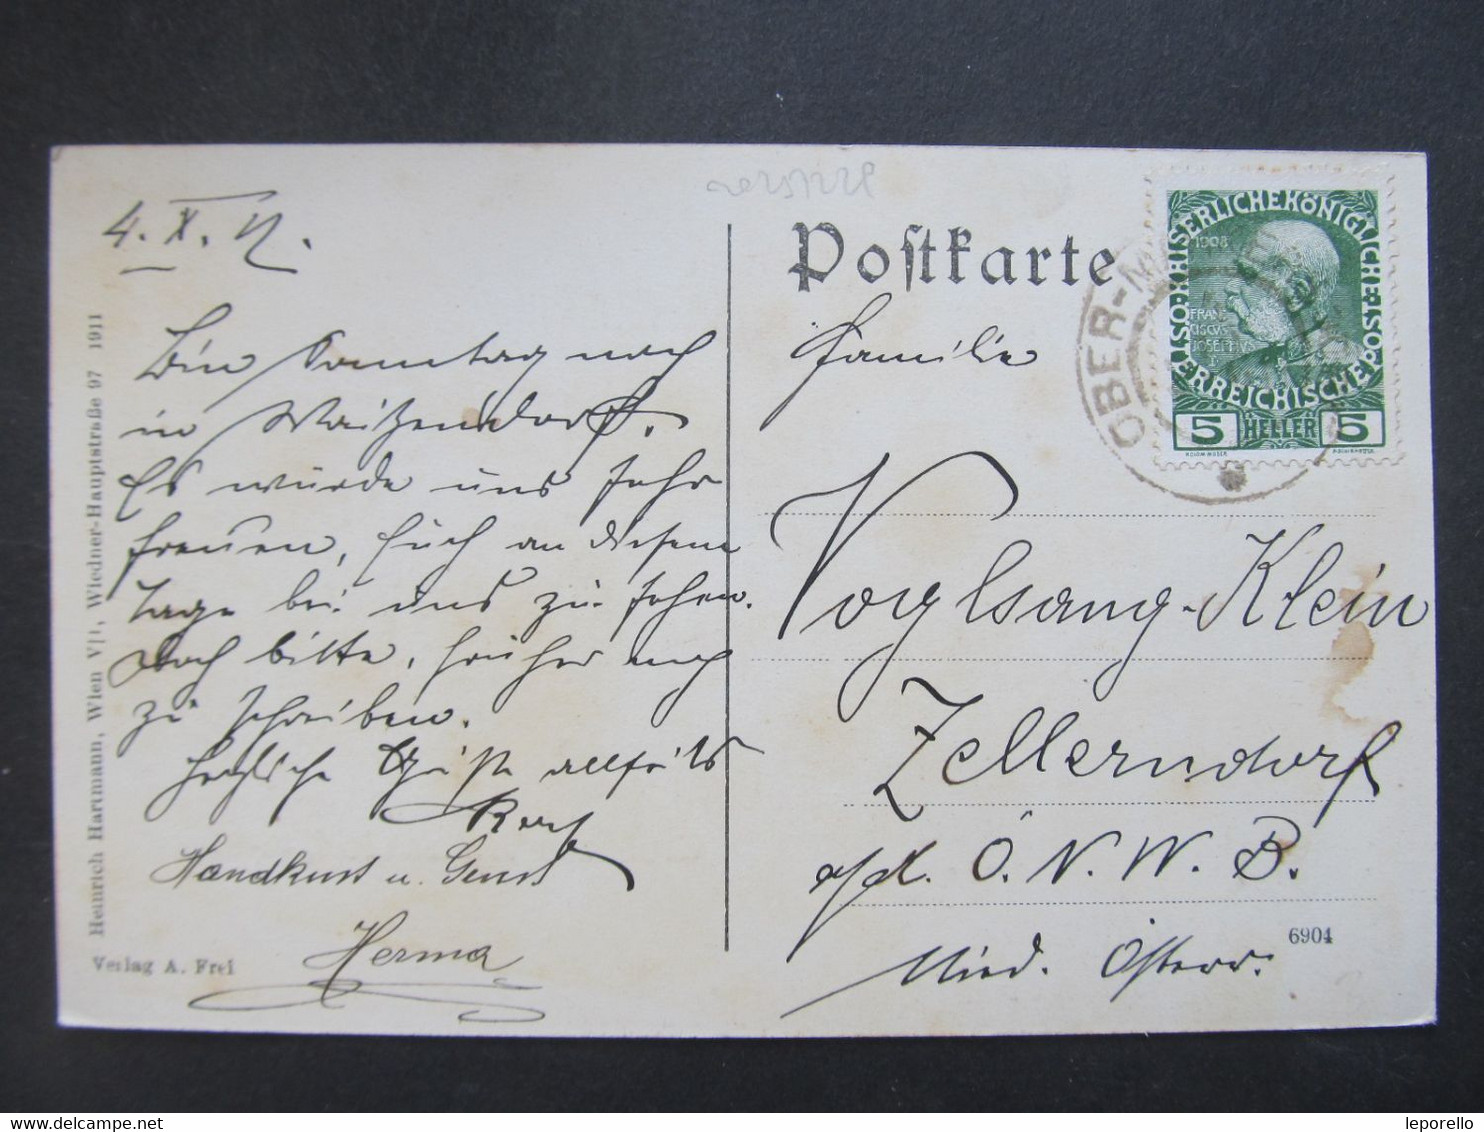 4. X. 12.
Bin Sonntag noch
in Waitzendorf.
Es würde uns sehr
freuen, Euch an diesem
Tage bei uns zu sehen.
Doch bitte, früher noch
zu schreiben.
Herzliche Grüße allseits
Handkuss u. Gruss
Herma
Heinrich Hartmann, Wien VII, Wiedner-Hauptstraße 97 1911
Verlag A. Frei
Postkarte
KAISERLICHEKÖNIGLICHE
ÖSTERREICHISCHE POST
1908
FRAN
CISCVS
JOSEPHVS
I
5 HELLER 5
OBER-M
Familie
Voglsang-Klein
Zellerndorf
a/d. Ö. N. W. B.
Nied. Österr.
6904
leporello